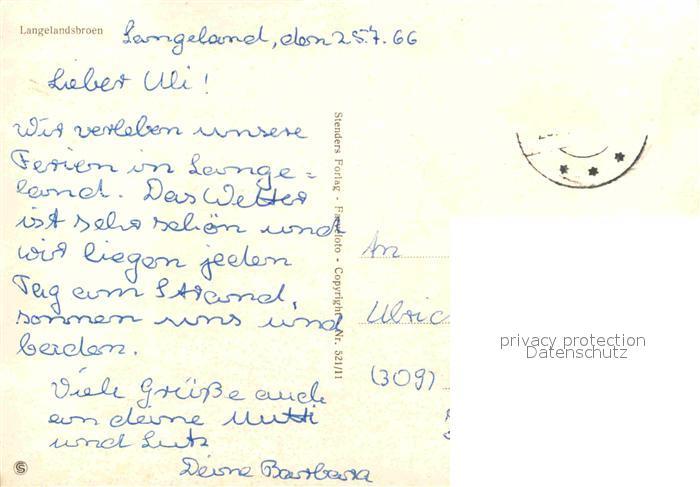 Langelandsbroen
Langeland, den 25.7.66
Lieber Uli!
Wir verleben unsere
Ferien in Lange=
land. Das Wetter
ist sehr schön und
wir liegen jeden
Tag am Strand,
sonnen uns und
baden.
Viele Grüße auch
an deine Mutti
und Lutz
Deine Barbara
Stenders Forlag - Farvefoto - Copyright Nr. 521/11
An
Ulric
(309)
privacy protection
Datenschutz